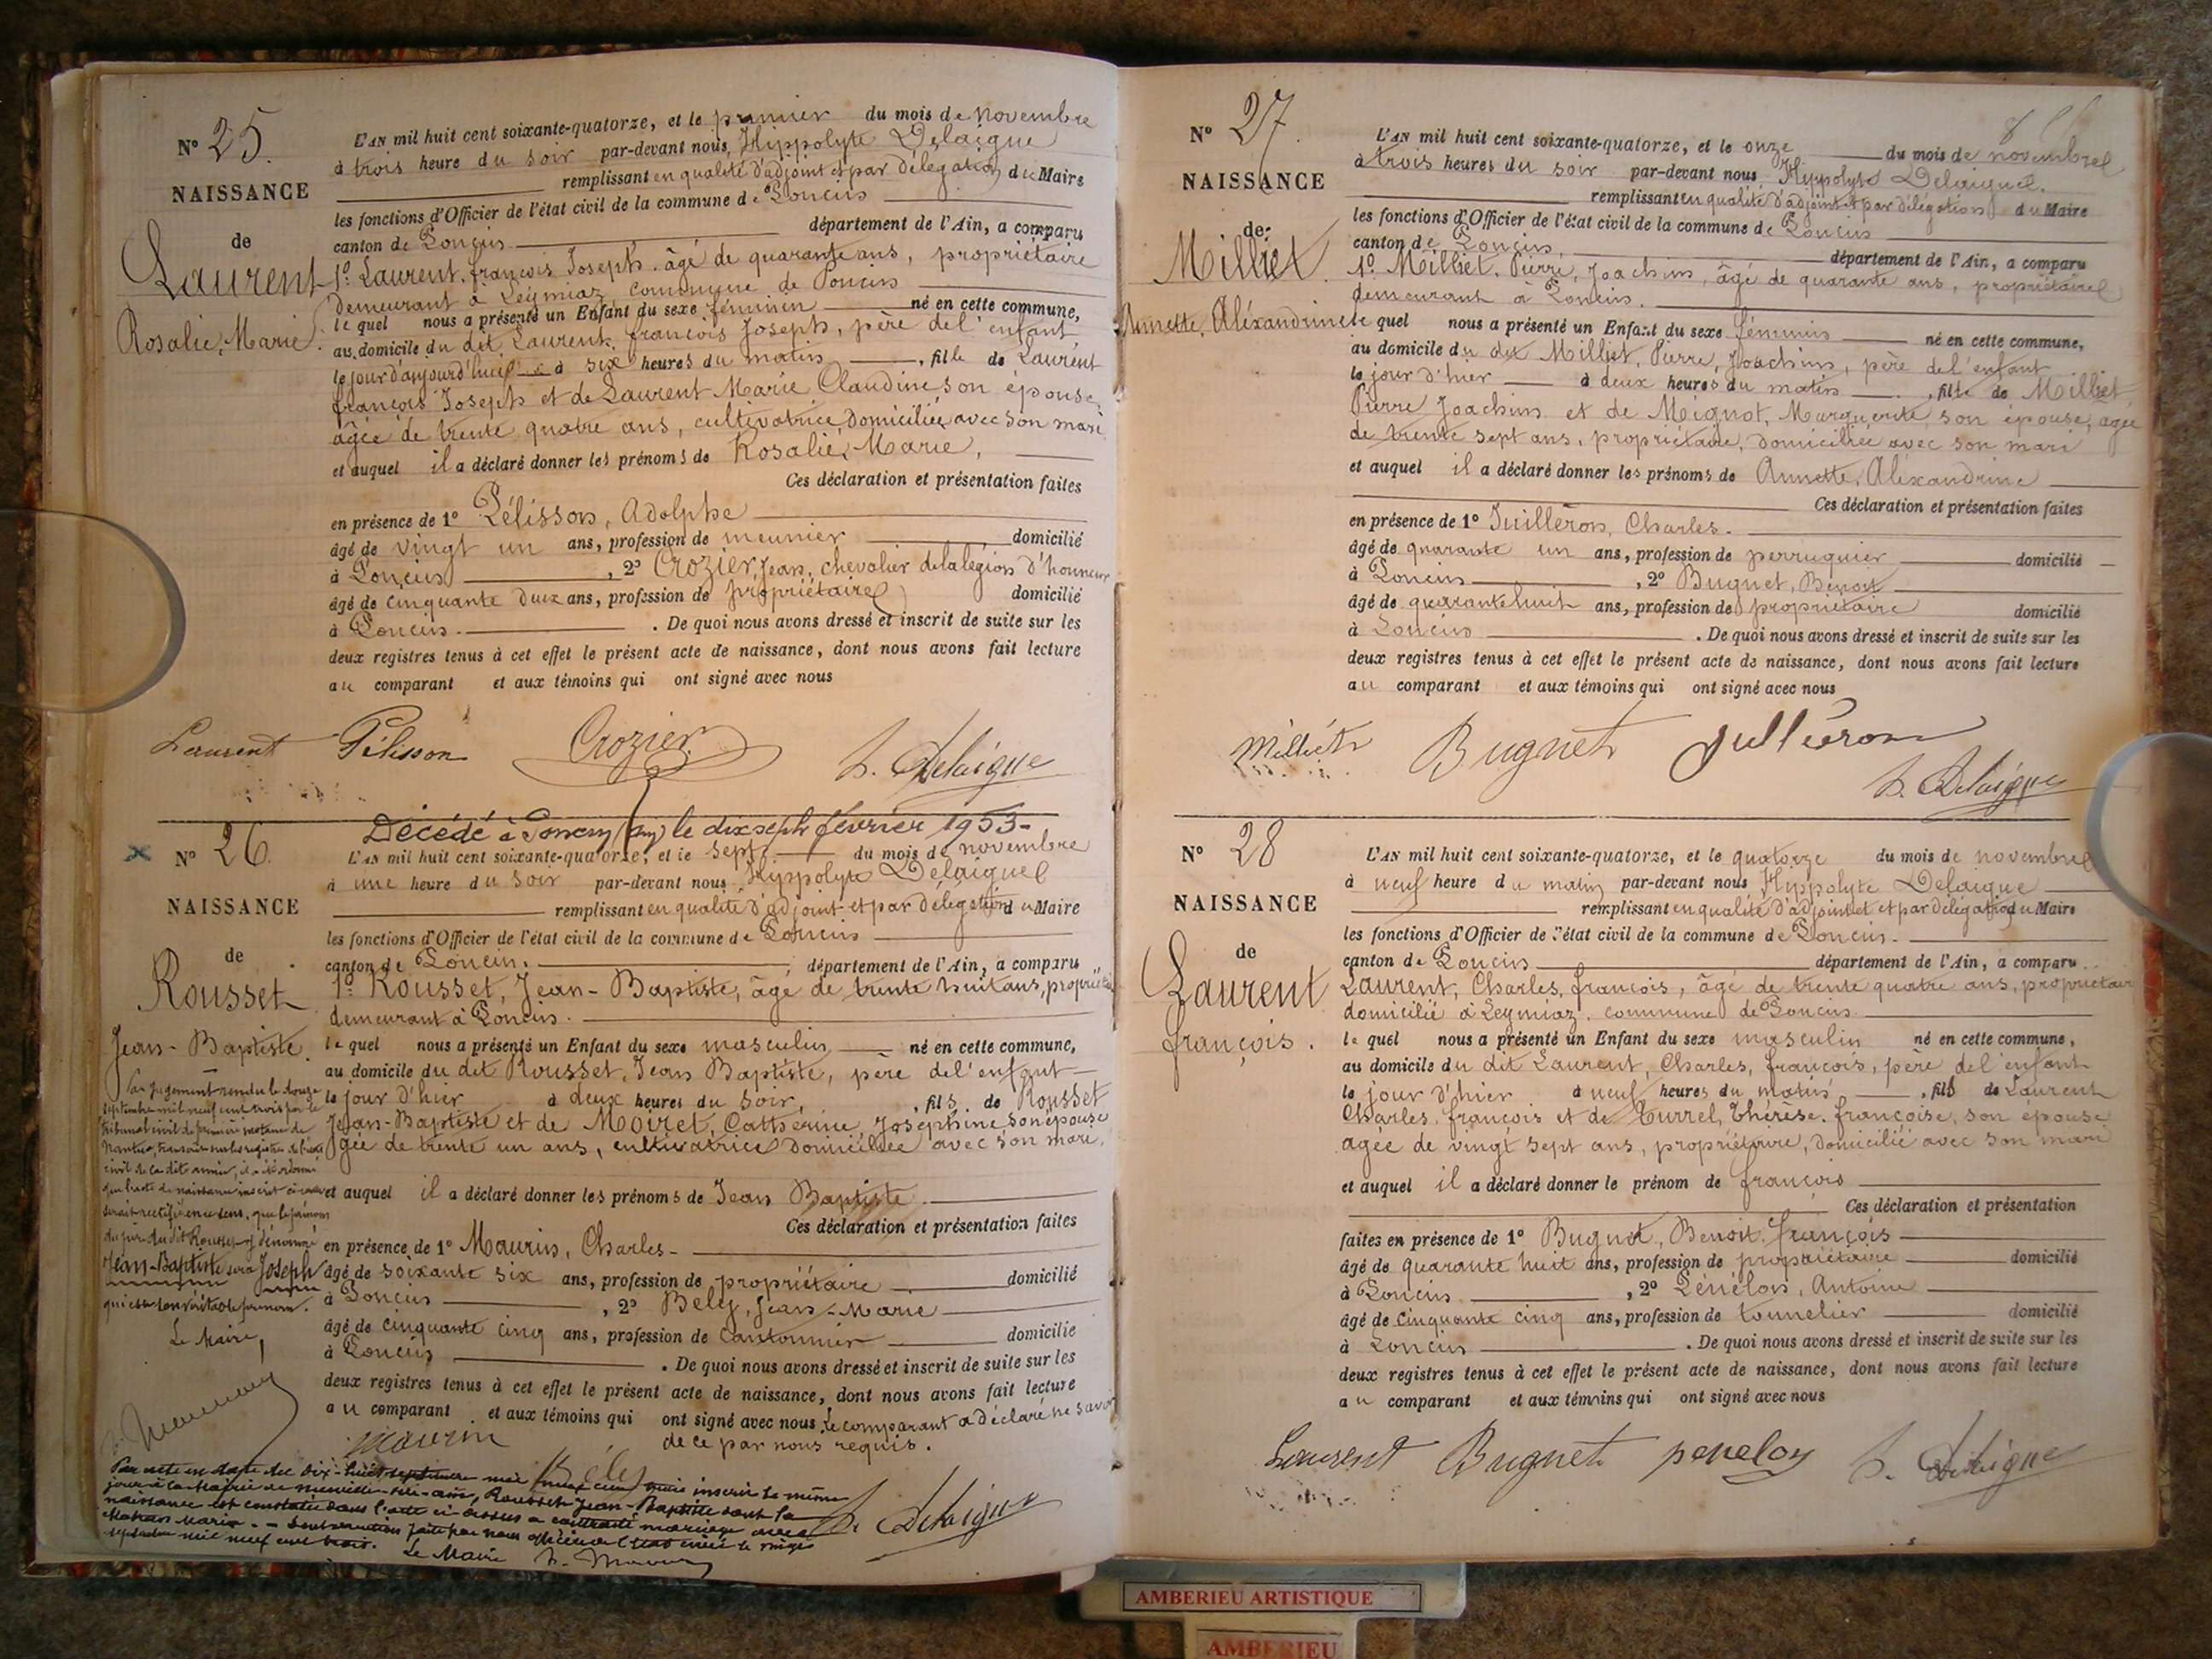 N° 25.
NAISSANCE
de
Laurent
Rosalie, Marie.
L'AN mil huit cent soixante-quatorze, et le premier du mois de novembre
à trois heure du soir par-devant nous, Hippolyte Delaigue
remplissant en qualité d'adjoint et par délégation du Maire
les fonctions d'Officier de l'état civil de la commune de Poncin
canton de Poncin département de l'Ain, a comparu
1° Laurent, françois Joseph, âgé de quarante ans, propriétaire
demeurant à Leymiaz commune de Poncin
le quel nous a présenté un Enfant du sexe féminin né en cette commune,
au domicile du dit Laurent, françois Joseph, père de l'enfant
le jour d'aujourd'hui à six heures du matin, fille de Laurent
françois Joseph et de Laurent Marie Claudine son épouse,
âgée de trente quatre ans, cultivatrice, domiciliée avec son mari
et auquel il a déclaré donner les prénoms de Rosalie, Marie,
Ces déclaration et présentation faites
en présence de 1° Pélisson, Adolphe
âgé de vingt un ans, profession de meunier domicilié
à Poncin, 2° Crozier, Jean, chevalier de la légion d'honneur
âgé de cinquante deux ans, profession de propriétaire domicilié
à Poncin. De quoi nous avons dressé et inscrit de suite sur les
deux registres tenus à cet effet le présent acte de naissance, dont nous avons fait lecture
au comparant et aux témoins qui ont signé avec nous
Laurent Pélisson Crozier h. Delaigue
Décédé à Poncin (Ain) le dix sept février 1953-
N° 26.
NAISSANCE
de
Rousset
Jean-Baptiste.
L'AN mil huit cent soixante-quatorze, et le sept du mois de novembre
à une heure du soir par-devant nous, Hyppolyte Delaigue
remplissant en qualité d'adjoint et par délégation du Maire
les fonctions d'Officier de l'état civil de la commune de Poncin
canton de Poncin, département de l'Ain, a comparu
1° Rousset, Jean-Baptiste, âgé de trente huit ans, propriétaire
demeurant à Poncin.
le quel nous a présenté un Enfant du sexe masculin né en cette commune,
au domicile du dit Rousset, Jean Baptiste, père de l'enfant
le jour d'hier à deux heures du soir, fils de Rousset
Jean-Baptiste et de Moiret, Catherine, Joséphine son épouse
âgée de trente un ans, cultivatrice domiciliée avec son mari,
et auquel il a déclaré donner les prénoms de Jean Baptiste.
Ces déclaration et présentation faites
en présence de 1° Maurin, Charles-
âgé de soixante six ans, profession de propriétaire domicilié
à Poncin, 2° Beley, Jean-Marie
âgé de cinquante cinq ans, profession de cantonnier domicilié
à Poncin. De quoi nous avons dressé et inscrit de suite sur les
deux registres tenus à cet effet le présent acte de naissance, dont nous avons fait lecture
au comparant et aux témoins qui ont signé avec nous, le comparant a déclaré ne savoir
de ce par nous requis.
Maurin Béley h. Delaigue
Par jugement rendu le douze
septembre mil neuf cent trois par le
tribunal civil de première instance de
Nantua, transcrit sur les registres de l'état
civil de la dite année, il a été ordonné
que l'acte de naissance inscrit ci-contre
serait rectifié en ce sens, que le prénom
du père du dit Rousset dénommé
Jean-Baptiste sera Joseph
qui est son véritable prénom.
Le Maire,
Par acte en date du dix-huit septembre mil neuf cent trois inscrit le même
jour à la Mairie de Rousset Jean-Baptiste dont la
naissance est constatée dans l'acte ci-dessus a contracté mariage avec
Marie.- faite par nous officier de l'état civil le
septembre mil neuf cent trois. Le Maire
N° 27.
NAISSANCE
de
Milliet
Annette, Aléxandrine
L'AN mil huit cent soixante-quatorze, et le onze du mois de novembre
à trois heures du soir par-devant nous Hyppolyte Delaigue.
remplissant en qualité d'adjoint et par délégation du Maire
les fonctions d'Officier de l'état civil de la commune de Poncin
canton de Poncin, département de l'Ain, a comparu
1° Milliet, Pierre, Joachim, âgé de quarante ans, propriétaire
demeurant à Poncin.
le quel nous a présenté un Enfant du sexe féminin né en cette commune,
au domicile du dit Milliet, Pierre, Joachim, père de l'enfant
le jour d'hier à deux heures du matin, fille de Milliet
Pierre Joachim et de Mignot, Marguerite, son épouse, agée
de trente sept ans, propriétaire, domiciliée avec son mari
et auquel il a déclaré donner les prénoms de Annette, Aléxandrine
Ces déclaration et présentation faites
en présence de 1° Juilléron, Charles.
âgé de quarante un ans, profession de perruquier domicilié
à Poncin, 2° Bugnet, Benoit
âgé de quarante huit ans, profession de propriétaire domicilié
à Poncin. De quoi nous avons dressé et inscrit de suite sur les
deux registres tenus à cet effet le présent acte de naissance, dont nous avons fait lecture
au comparant et aux témoins qui ont signé avec nous
Milliet Bugnet Julléron
h. Delaigue
N° 28
NAISSANCE
de
Laurent
françois.
L'AN mil huit cent soixante-quatorze, et le quatorze du mois de novembre
à neuf heure du matin par-devant nous, Hippolyte Delaigue
remplissant en qualité d'adjoint et par délégation du Maire
les fonctions d'Officier de l'état civil de la commune de Poncin.
canton de Poncin département de l'Ain, a comparu
Laurent, Charles, françois, âgé de trente quatre ans, propriétaire
domicilié à Leymiaz, commune de Poncin
le quel nous a présenté un Enfant du sexe masculin né en cette commune,
au domicile du dit Laurent, Charles, françois, père de l'enfant
le jour d'hier à neuf heures du matin, fils de Laurent
Charles, françois et de Turrel, Thérèse, françoise, son épouse
agée de vingt sept ans, propriétaire, domiciliée avec son mari
et auquel il a déclaré donner le prénom de françois
Ces déclaration et présentation
faites en présence de 1° Bugnet, Benoit, françois
âgé de quarante huit ans, profession de propriétaire domicilié
à Poncin, 2° Pénélon, Antoine
âgé de cinquante cinq ans, profession de tonnelier domicilié
à Poncin. De quoi nous avons dressé et inscrit de suite sur les
deux registres tenus à cet effet le présent acte de naissance, dont nous avons fait lecture
au comparant et aux témoins qui ont signé avec nous
Laurent Bugnet penelon h. Delaigue
AMBERIEU ARTISTIQUE
AMBERIEU